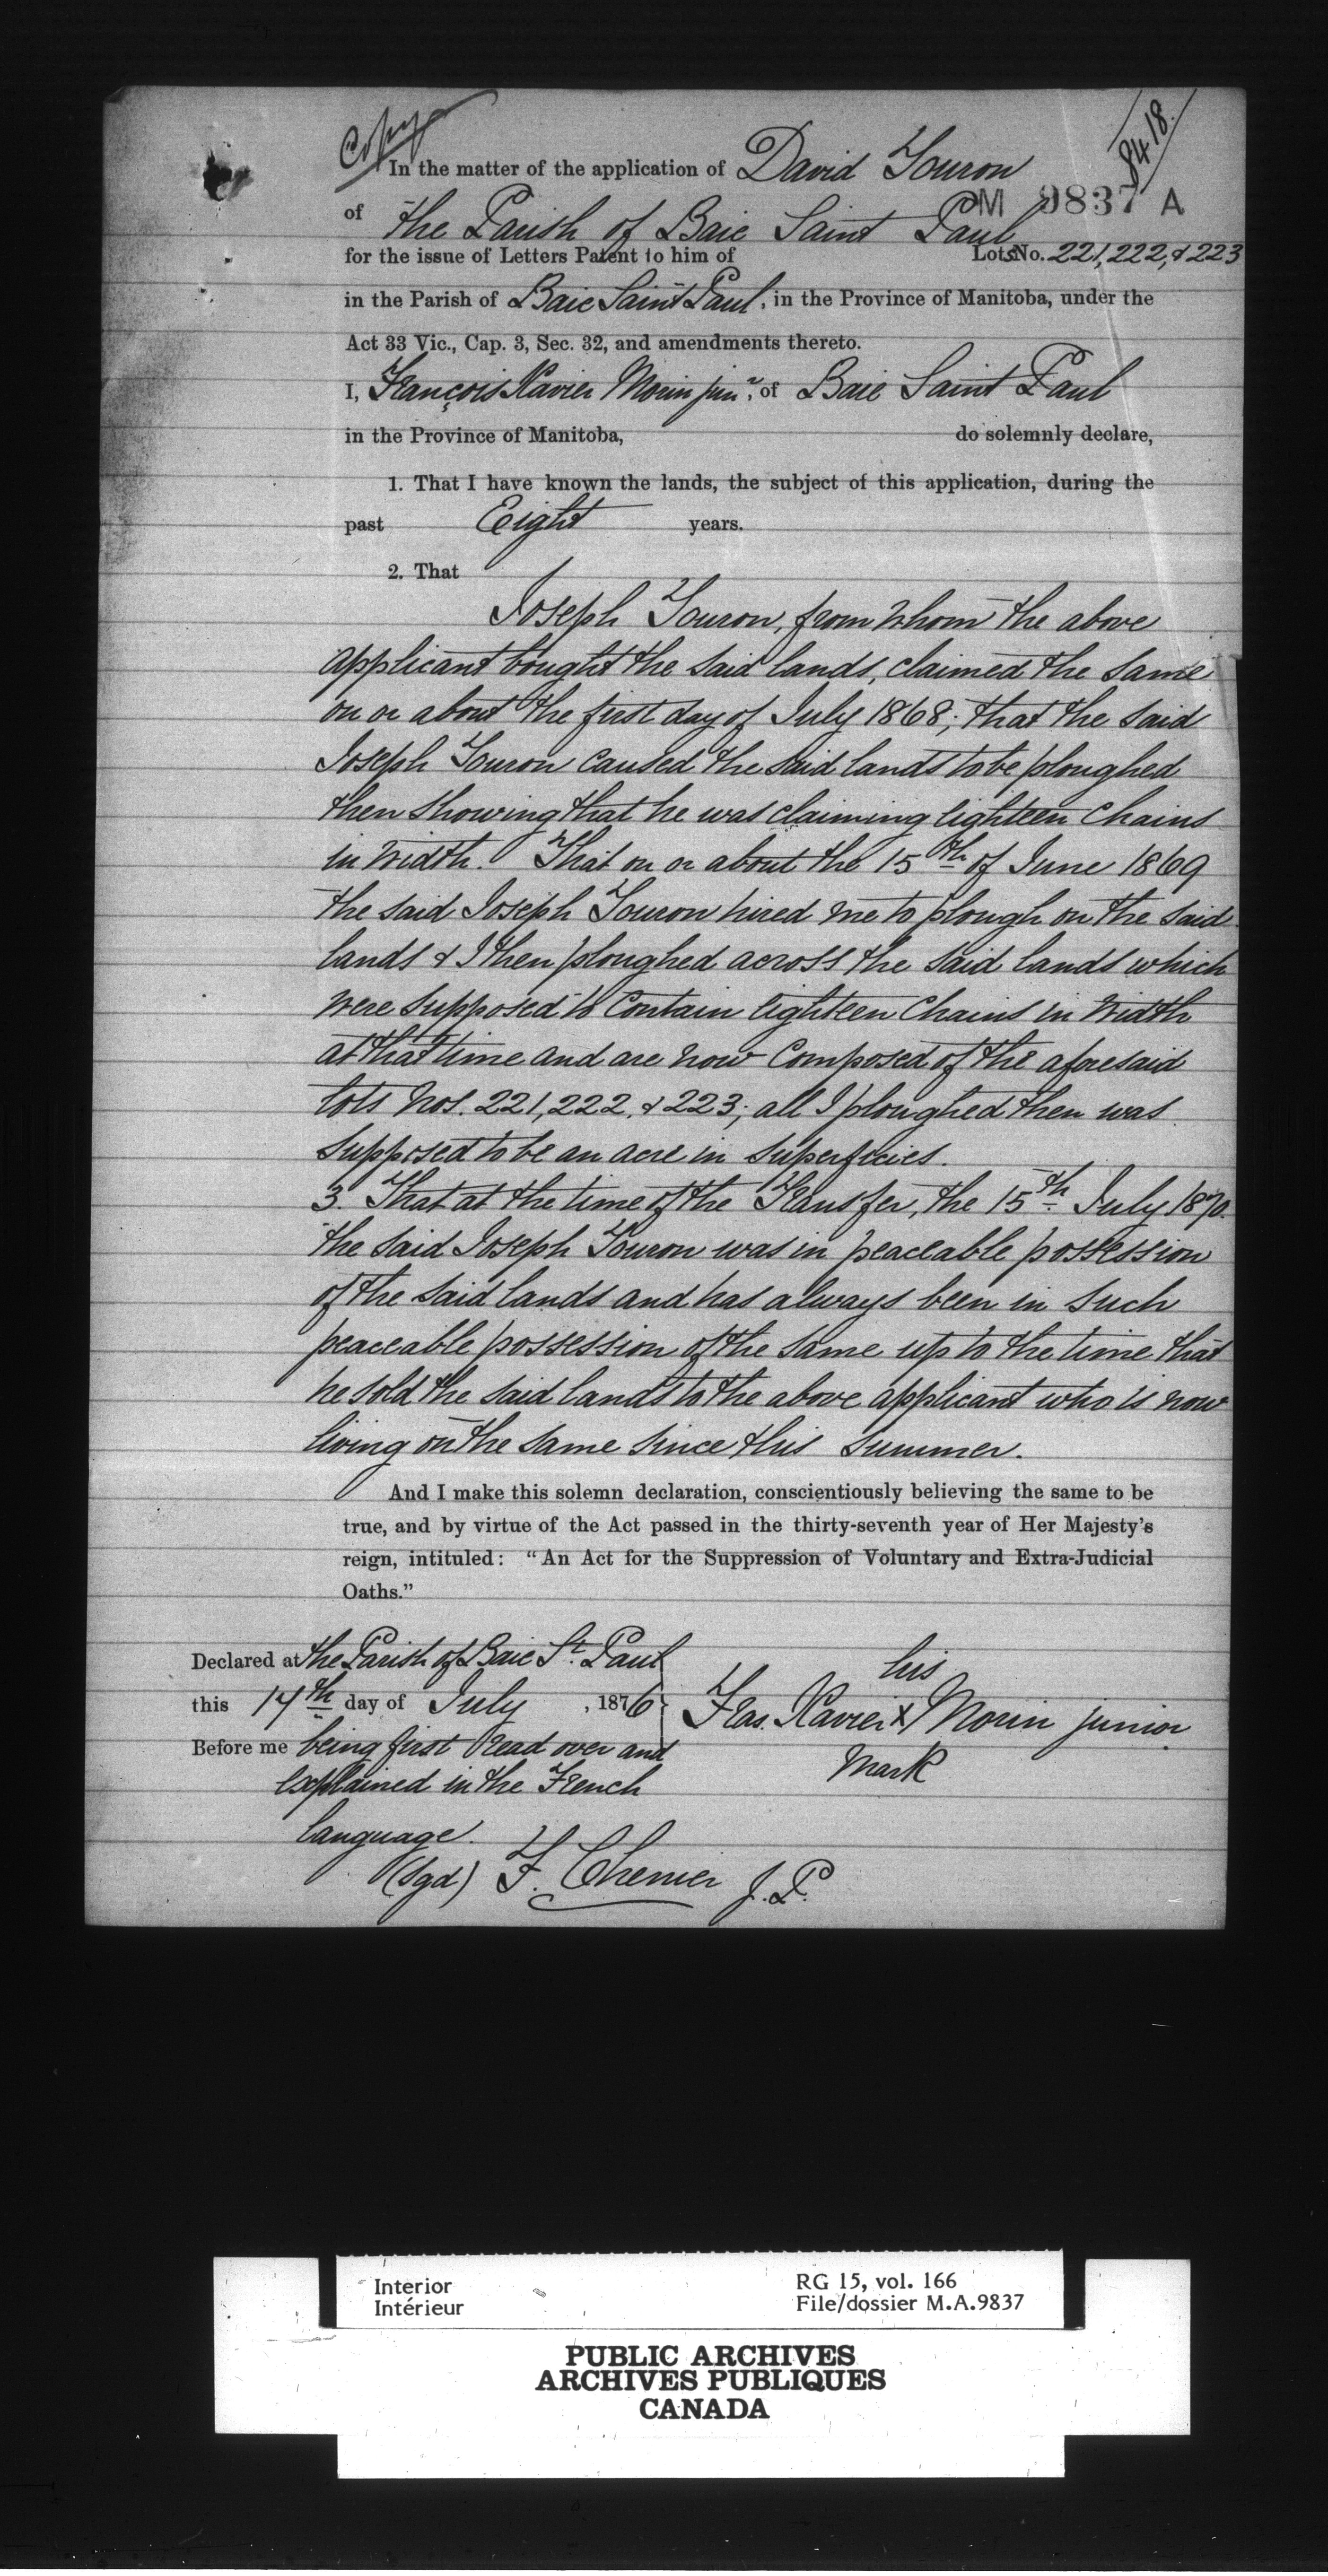 Copy
8418.
In the matter of the application of David Touron
M 9837 A
of the Parish of Baie Saint Paul
for the issue of Letters Patent to him of Lots No. 221, 222, & 223
in the Parish of Baie Saint Paul, in the Province of Manitoba, under the
Act 33 Vic., Cap. 3, Sec. 32, and amendments thereto.
I, François Xavier Morin junr, of Baie Saint Paul
in the Province of Manitoba, do solemnly declare,
1. That I have known the lands, the subject of this application, during the
past Eight years.
2. That
Joseph Touron, from whom the above
applicant bought the said lands, claimed the same
on or about the first day of July 1868; that the said
Joseph Touron caused the said lands to be ploughed
then showing that he was claiming eighteen chains
in width. That on or about the 15th of June 1869
the said Joseph Touron hired me to plough on the said
lands & I then ploughed across the said lands which
were supposed to contain eighteen chains in width
at that time and are now composed of the aforesaid
lots Nos. 221, 222, & 223; all I ploughed then was
supposed to be an acre in superficies.
3. That at the time of the Transfer, the 15th July 1870.
the said Joseph Touron was in peaceable possession
of the said lands and has always been in such
peaceable possession of the same up to the time that
he sold the said lands to the above applicant who is now
living on the same since this summer.
And I make this solemn declaration, conscientiously believing the same to be
true, and by virtue of the Act passed in the thirty-seventh year of Her Majesty's
reign, intituled: "An Act for the Suppression of Voluntary and Extra-Judicial
Oaths."
Declared at the Parish of Baie St. Paul
this 14th day of July, 1876
Before me being first read over and
explained in the French
language.
his
Fras. Xavier X Morin junior
mark
(sgd) F. Chenier J.P.
Interior
Intérieur
RG 15, vol. 166
File/dossier M.A.9837
PUBLIC ARCHIVES
ARCHIVES PUBLIQUES
CANADA